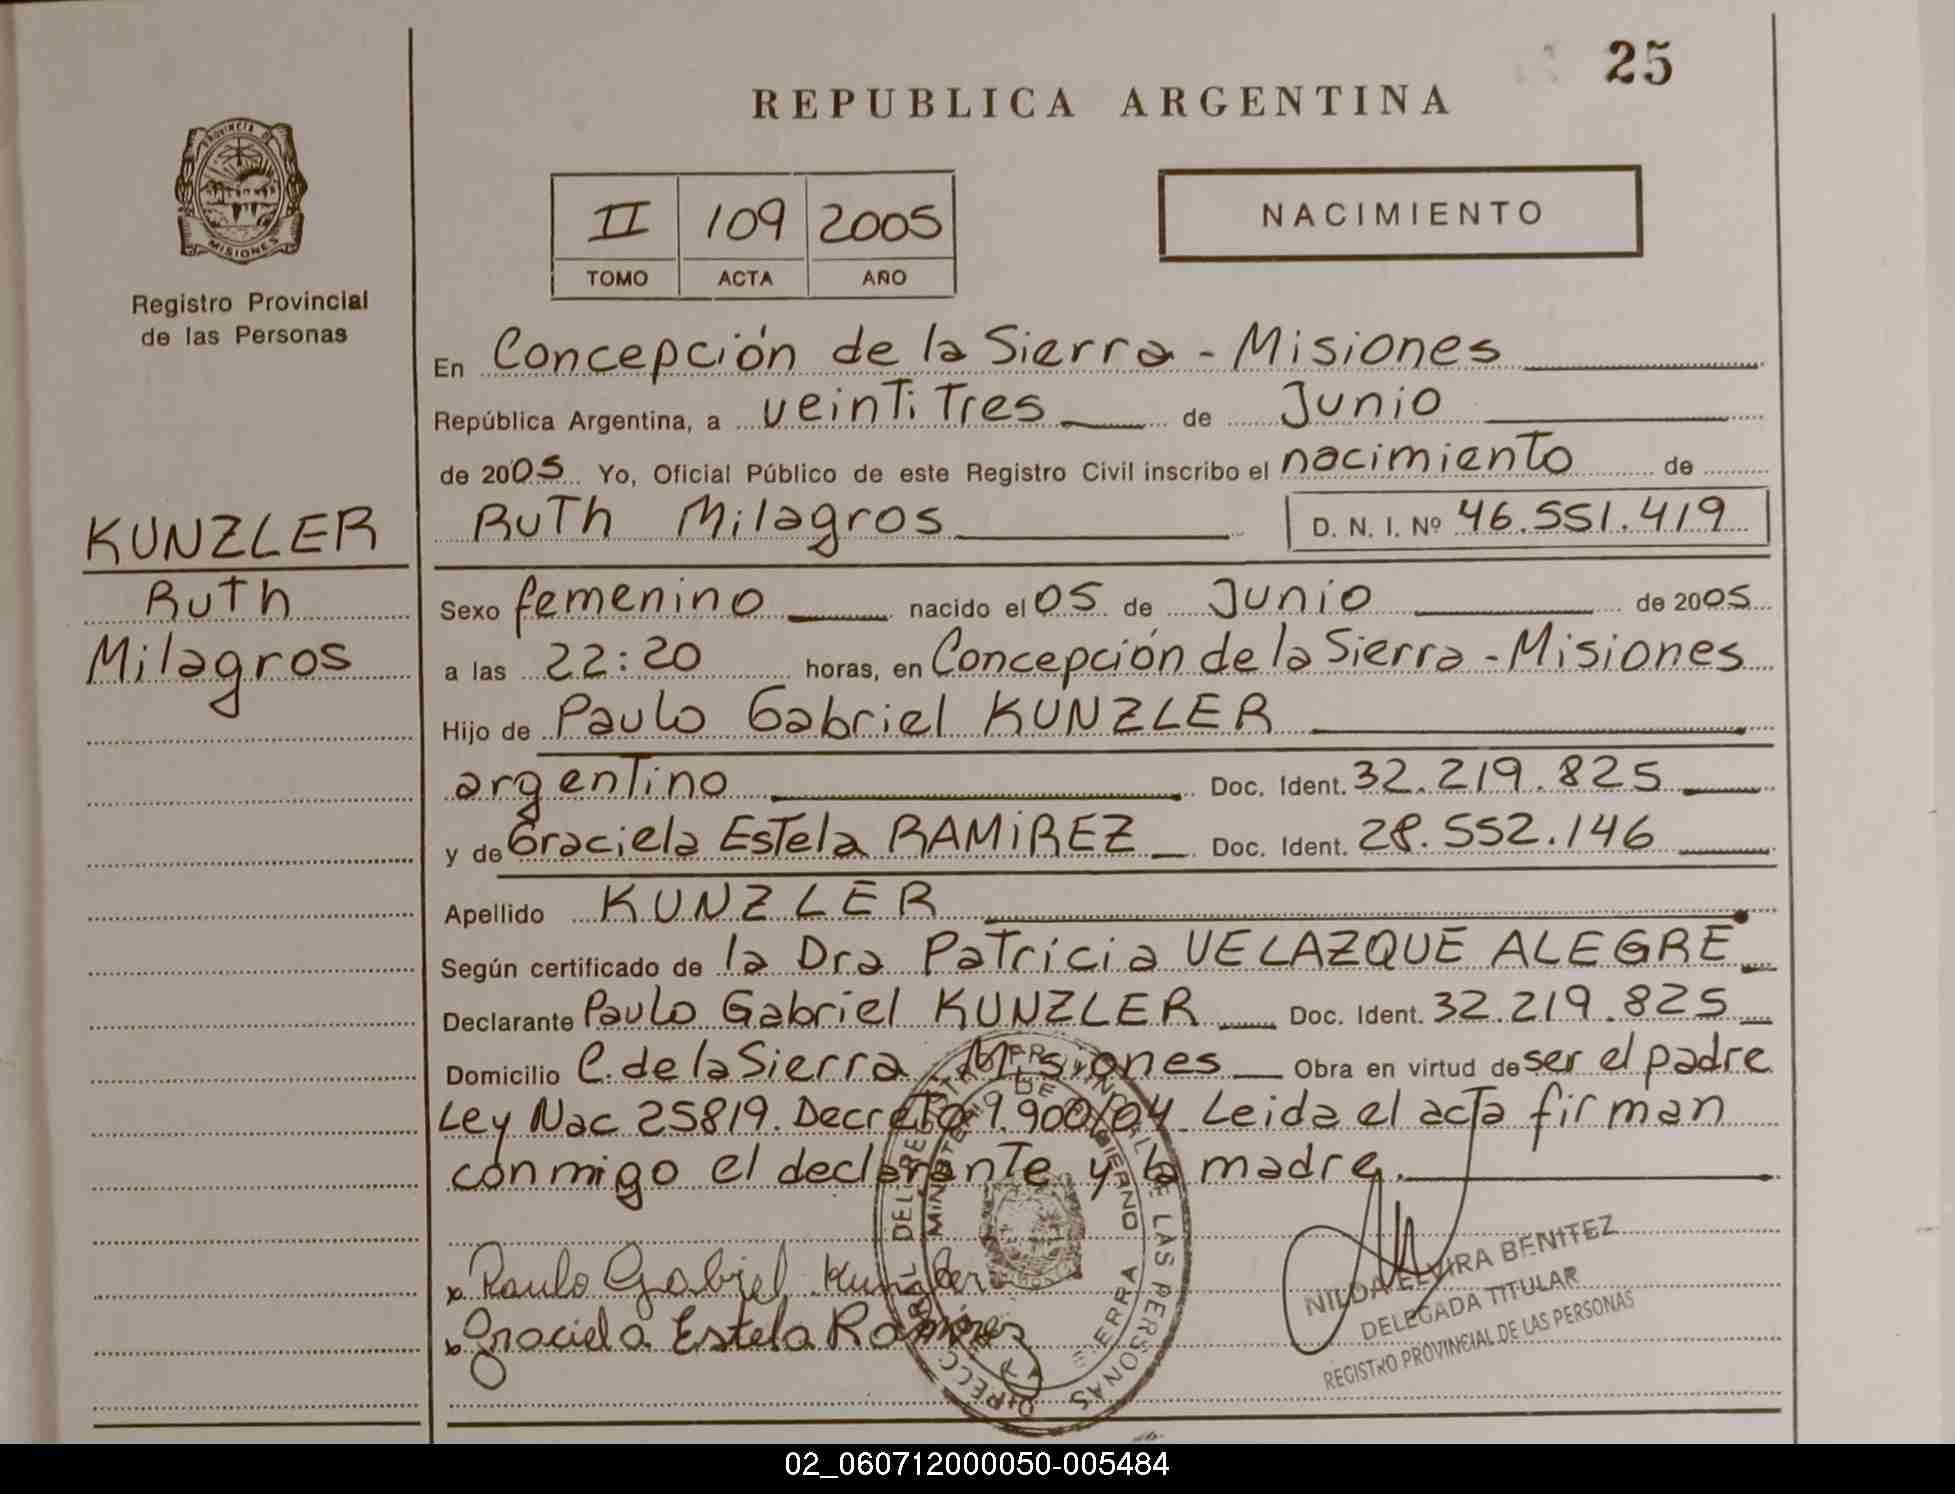 25
REPUBLICA ARGENTINA
PROVINCIA DE
MISIONES
Registro Provincial
de las Personas
II 109 2005
TOMO ACTA AÑO
NACIMIENTO
En Concepción de la Sierra - Misiones
República Argentina, a veintitres de Junio
de 2005 Yo, Oficial Público de este Registro Civil inscribo el nacimiento de
Ruth Milagros D. N. I. Nº 46.551.419
KUNZLER
Ruth
Milagros
Sexo femenino nacido el 05 de Junio de 2005
a las 22:20 horas, en Concepción de la Sierra - Misiones
Hijo de Paulo Gabriel KUNZLER
argentino Doc. Ident. 32.219.825
y de Graciela Estela RAMIREZ Doc. Ident. 28.552.146
Apellido KUNZLER
Según certificado de la Dra Patricia VELAZQUE ALEGRE
Declarante Paulo Gabriel KUNZLER Doc. Ident. 32.219.825
Domicilio C. de la Sierra Misiones Obra en virtud de ser el padre
Ley Nac 25819. Decreto 1.900/04 Leida el acta firman
conmigo el declarante y la madre.
x Paulo Gabriel Kunzler
x Graciela Estela Ramirez
DEL REGISTRO PROVINCIAL DE LAS PERSONAS
MINISTERIO DE GOBIERNO
SIERRA
NILDA ELVIRA BENITEZ
DELEGADA TITULAR
REGISTRO PROVINCIAL DE LAS PERSONAS
02_060712000050-005484